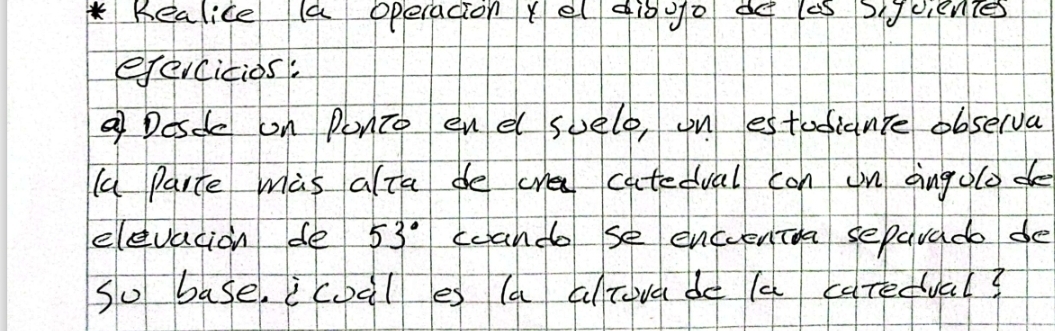 * Realice la operación y el dibujo de los siguientes
ejercicios:
a) Desde un punto en el suelo, un estudiante observa
la parte más alta de una catedral con un ángulo de
elevación de 53° cuando se encuentra separado de
su base. ¿cuál es la altura de la catedral?